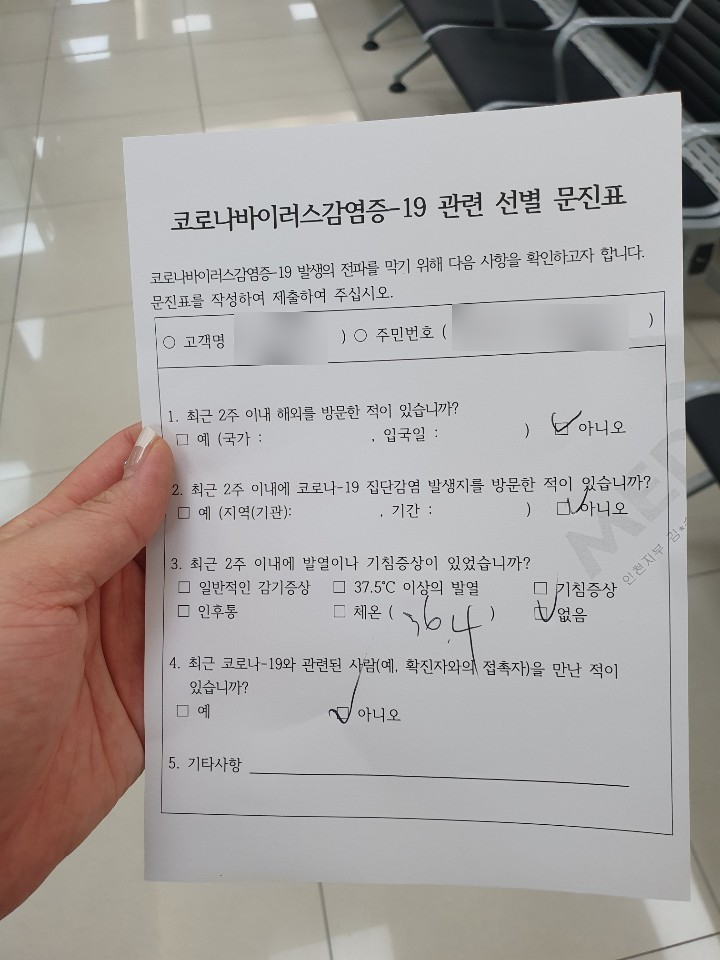 코로나바이러스감염증-19 관련 선별 문진표
코로나바이러스감염증-19 발생의 전파를 막기 위해 다음 사항을 확인하고자 합니다.
문진표를 작성하여 제출하여 주십시오.
○ 고객명 ) ○ 주민번호 ( )
1. 최근 2주 이내 해외를 방문한 적이 있습니까?
□ 예 (국가 : , 입국일 : ) ☑ 아니오
2. 최근 2주 이내에 코로나-19 집단감염 발생지를 방문한 적이 있습니까?
□ 예 (지역(기관): , 기간 : ) ☑ 아니오
3. 최근 2주 이내에 발열이나 기침증상이 있었습니까?
□ 일반적인 감기증상 □ 37.5℃ 이상의 발열 □ 기침증상
□ 인후통 □ 체온 ( 36.4 ) ☑ 없음
4. 최근 코로나-19와 관련된 사람(예, 확진자와의 접촉자)을 만난 적이
있습니까?
□ 예 ☑ 아니오
5. 기타사항
MED
인천지부 김*